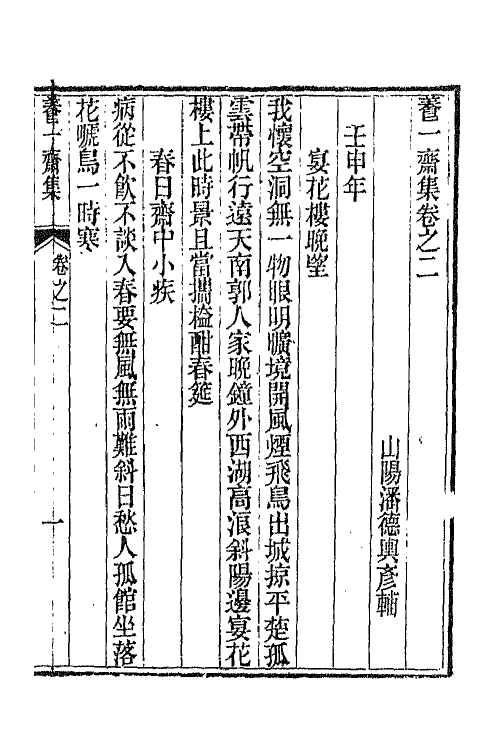 養一齋集卷之二
山陽潘德輿彥輔
壬申年
宴花樓晚望
我懷空洞無一物眼明曠境開風煙飛鳥出城掠平楚孤
雲帶帆行遠天南郭人家晚鐘外西湖高浪斜陽邊宴花
樓上此時景且當攜榼酣春筵
春日齋中小疾
病從不飲不談入春要無風無雨難斜日愁人孤館坐落
花嗁鳥一時寒
養一齋集
卷之二
一